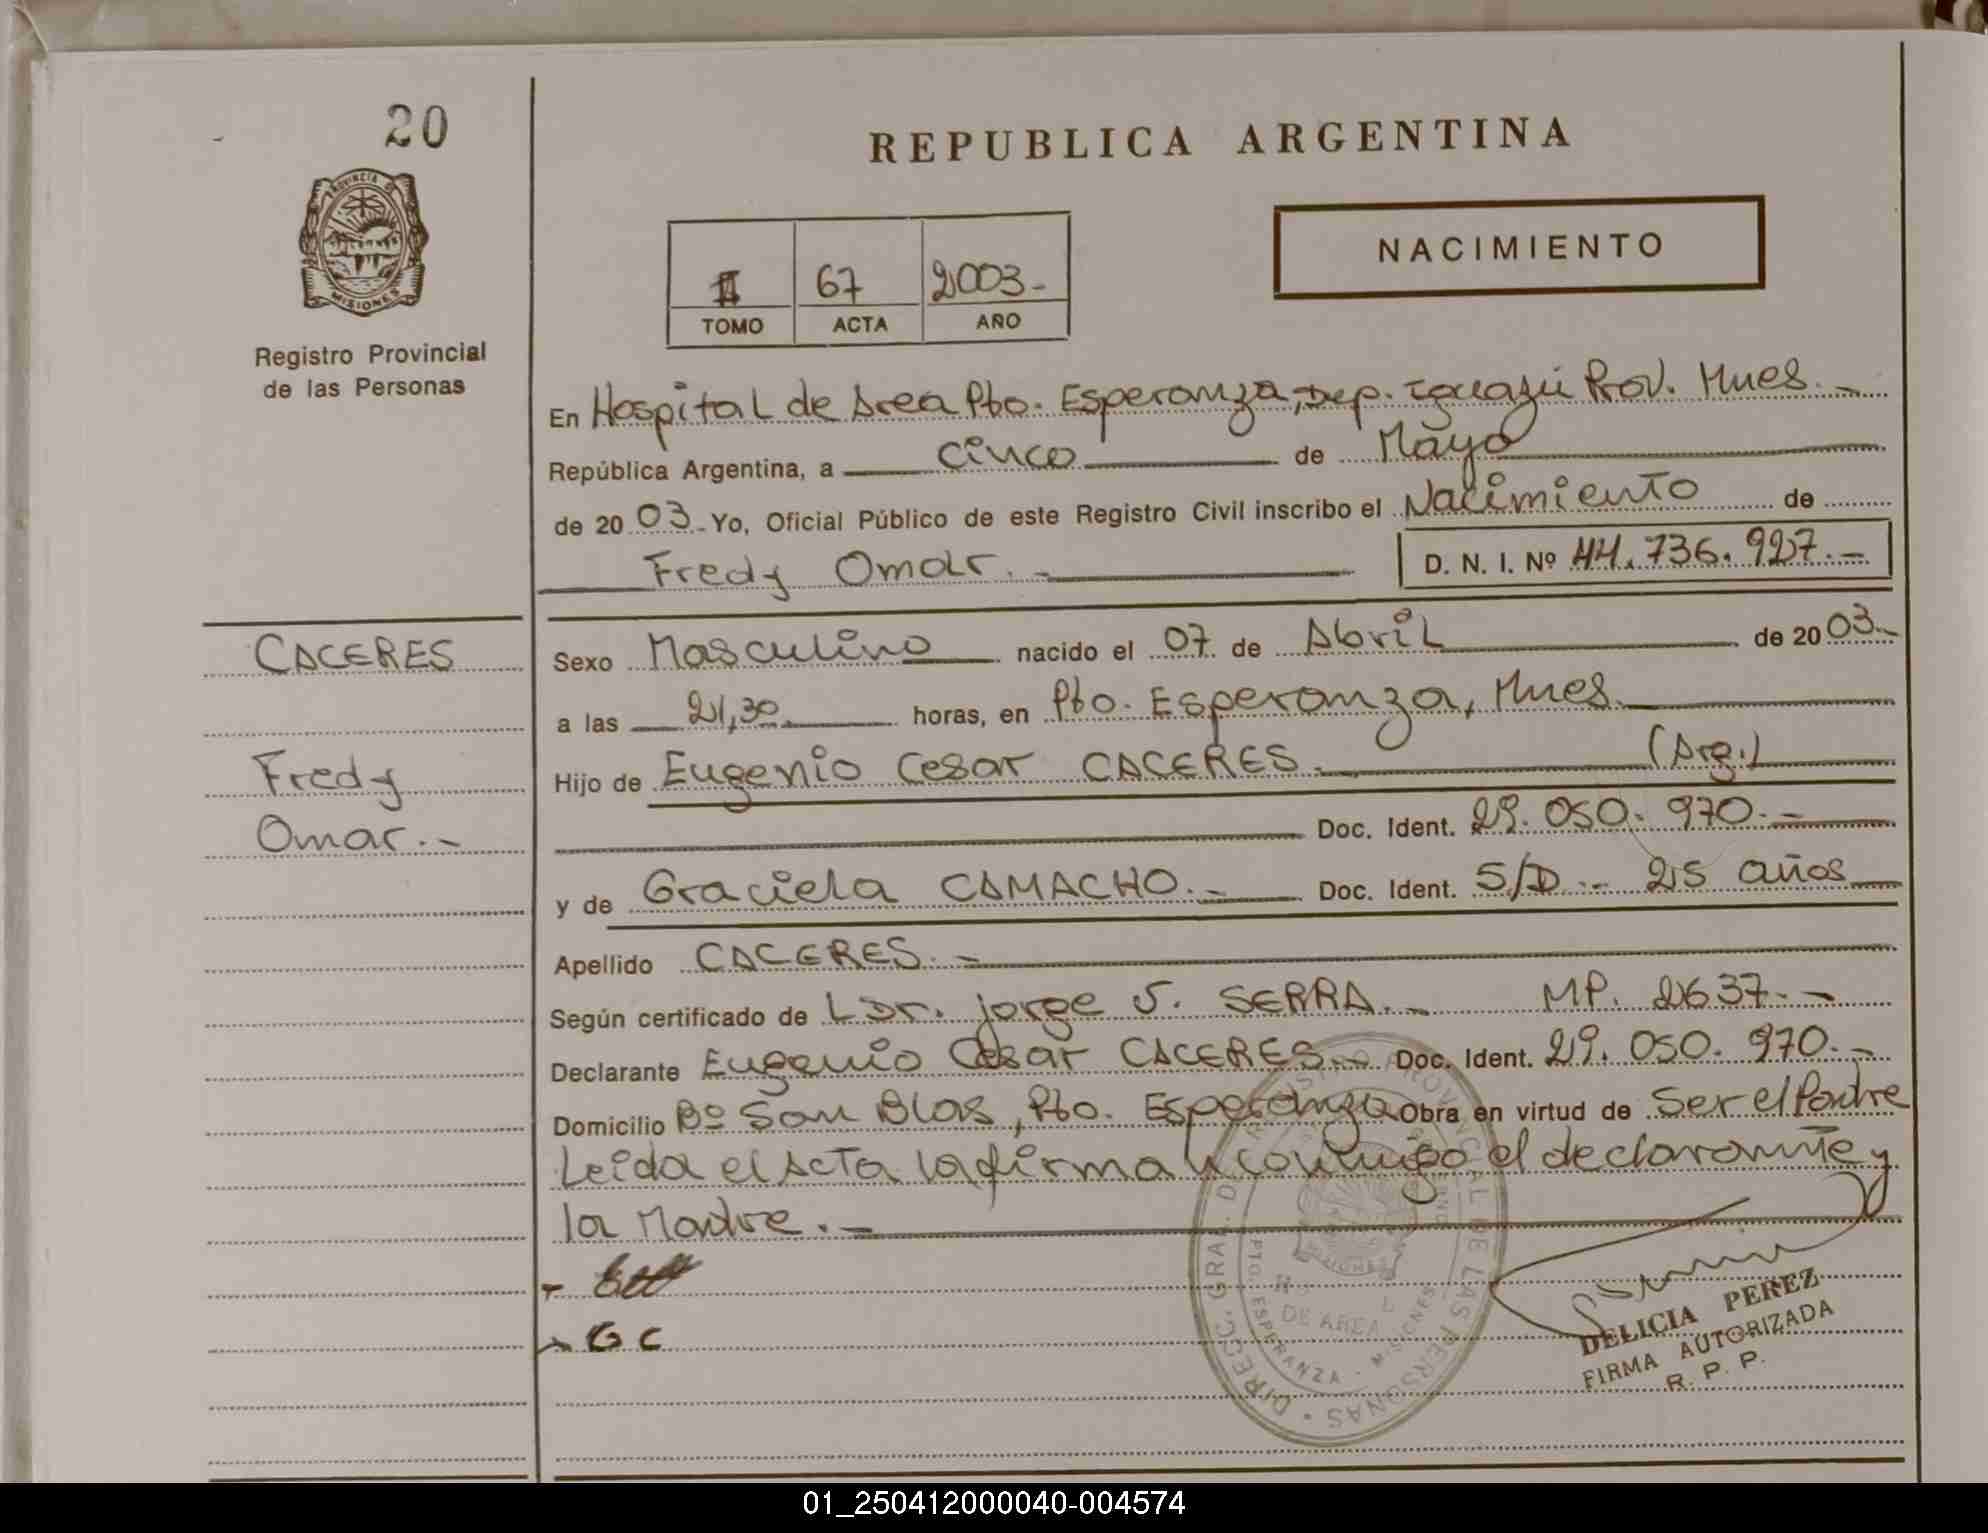 20
PROVINCIA DE
MISIONES
Registro Provincial
de las Personas
REPUBLICA ARGENTINA
NACIMIENTO
II 67 2003.-
TOMO ACTA AÑO
En Hospital de Area Pto. Esperanza, Dep. Iguazú Prov. Mnes.-
República Argentina, a cinco de Mayo
de 20 03.- Yo, Oficial Público de este Registro Civil inscribo el Nacimiento de
Fredy Omar.- D. N. I. Nº 44.736.927.-
CACERES
Fredy
Omar.-
Sexo Masculino nacido el 07 de Abril de 20 03.-
a las 21,30 horas, en Pto. Esperanza, Mnes.
Hijo de Eugenio Cesar CACERES.- (Arg.)
Doc. Ident. 29.050.970.-
y de Graciela CAMACHO.- Doc. Ident. S/D.- 25 años
Apellido CACERES.-
Según certificado de Dr. Jorge S. SERRA.- MP. 2637.-
Declarante Eugenio Cesar CACERES.- Doc. Ident. 29.050.970.-
Domicilio Bº San Blas, Pto. Esperanza Obra en virtud de Ser el Padre
Leida el Acta la firman conmigo el declarante y
la Madre.-
G C
DIREC. GRAL. DE REGISTRO PROVINCIAL DE LAS PERSONAS
DE AREA
PTO. ESPERANZA - MISIONES
DELICIA PEREZ
FIRMA AUTORIZADA
R. P. P.
01_250412000040-004574